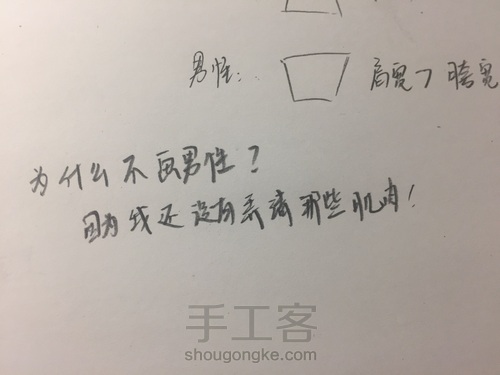 男性: 肩宽>胯宽
为什么不画男性?
因为我还没有弄清那些肌肉!
手工客
shougongke.com